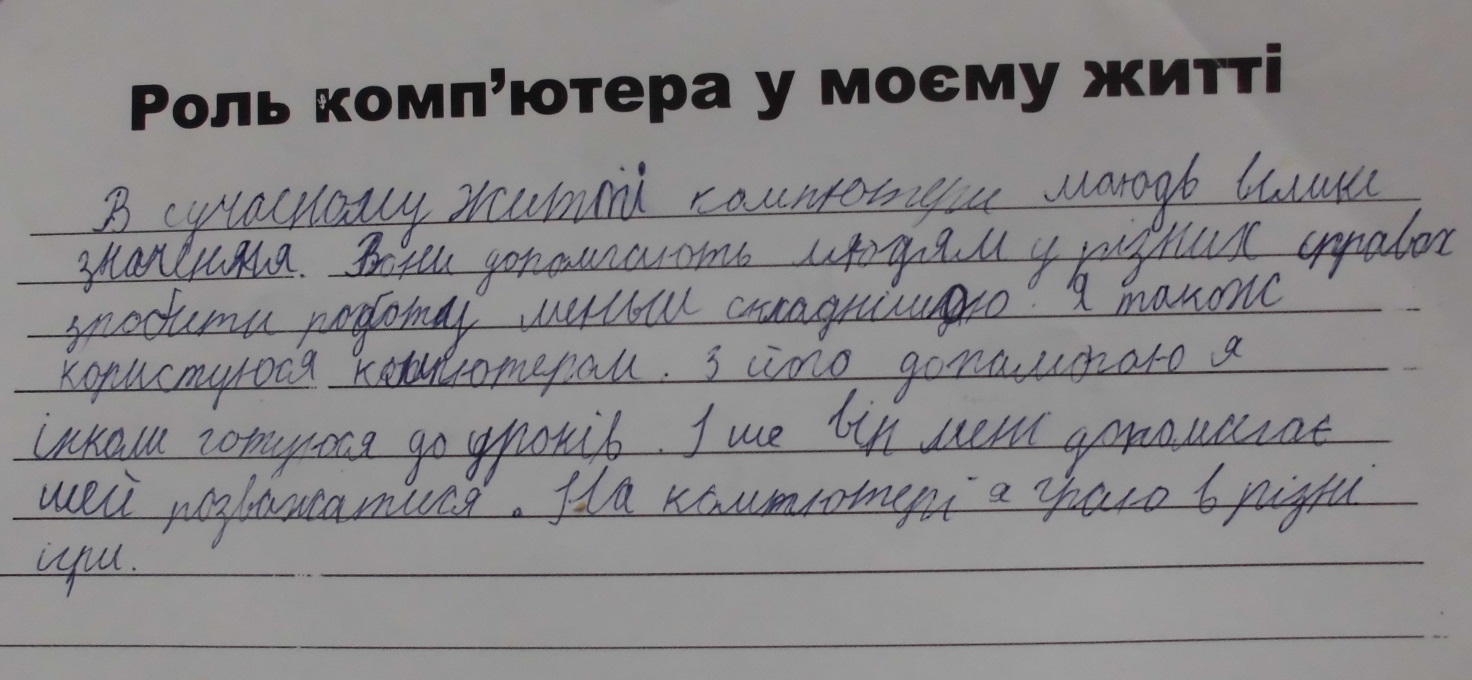 Роль комп'ютера у моєму житті
В сучасному житті компютери маюдь велике
значення. Вони допомгають людям у різних справах
зробити роботу меньш складнішою. Я також
користуюся компютером. З його допомогаю я
інколи готуюся до уроків. І ше він мені допомагає
шей розважатися. На компютері я граю в різні
ігри.